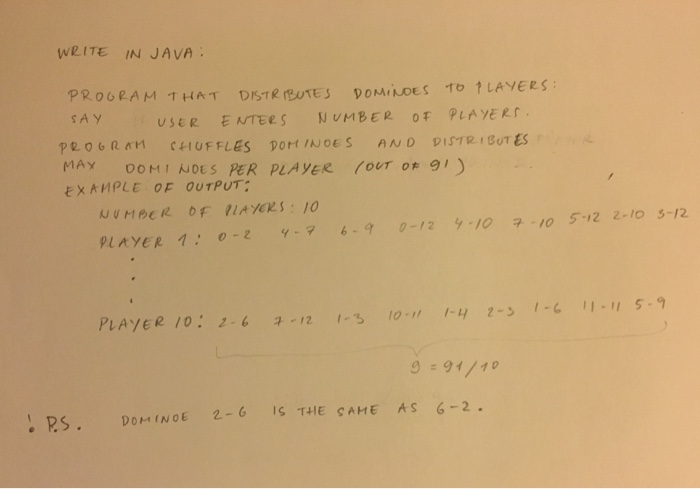 WRITE IN JAVA:
PROGRAM THAT DISTRIBUTES DOMINOES TO PLAYERS:
SAY USER ENTERS NUMBER OF PLAYERS.
PROGRAM SHUFFLES DOMINOES AND DISTRIBUTES
MAX DOMINOES PER PLAYER (OUT OF 91)
EXAMPLE OF OUTPUT:
NUMBER OF PLAYERS: 10
PLAYER 1: 0-2 4-7 6-9 0-12 4-10 7-10 5-12 2-10 3-12
.
.
.
PLAYER 10: 2-6 7-12 1-3 10-11 1-4 2-3 1-6 11-11 5-9
9 = 91/10
! P.S. DOMINOE 2-6 IS THE SAME AS 6-2.